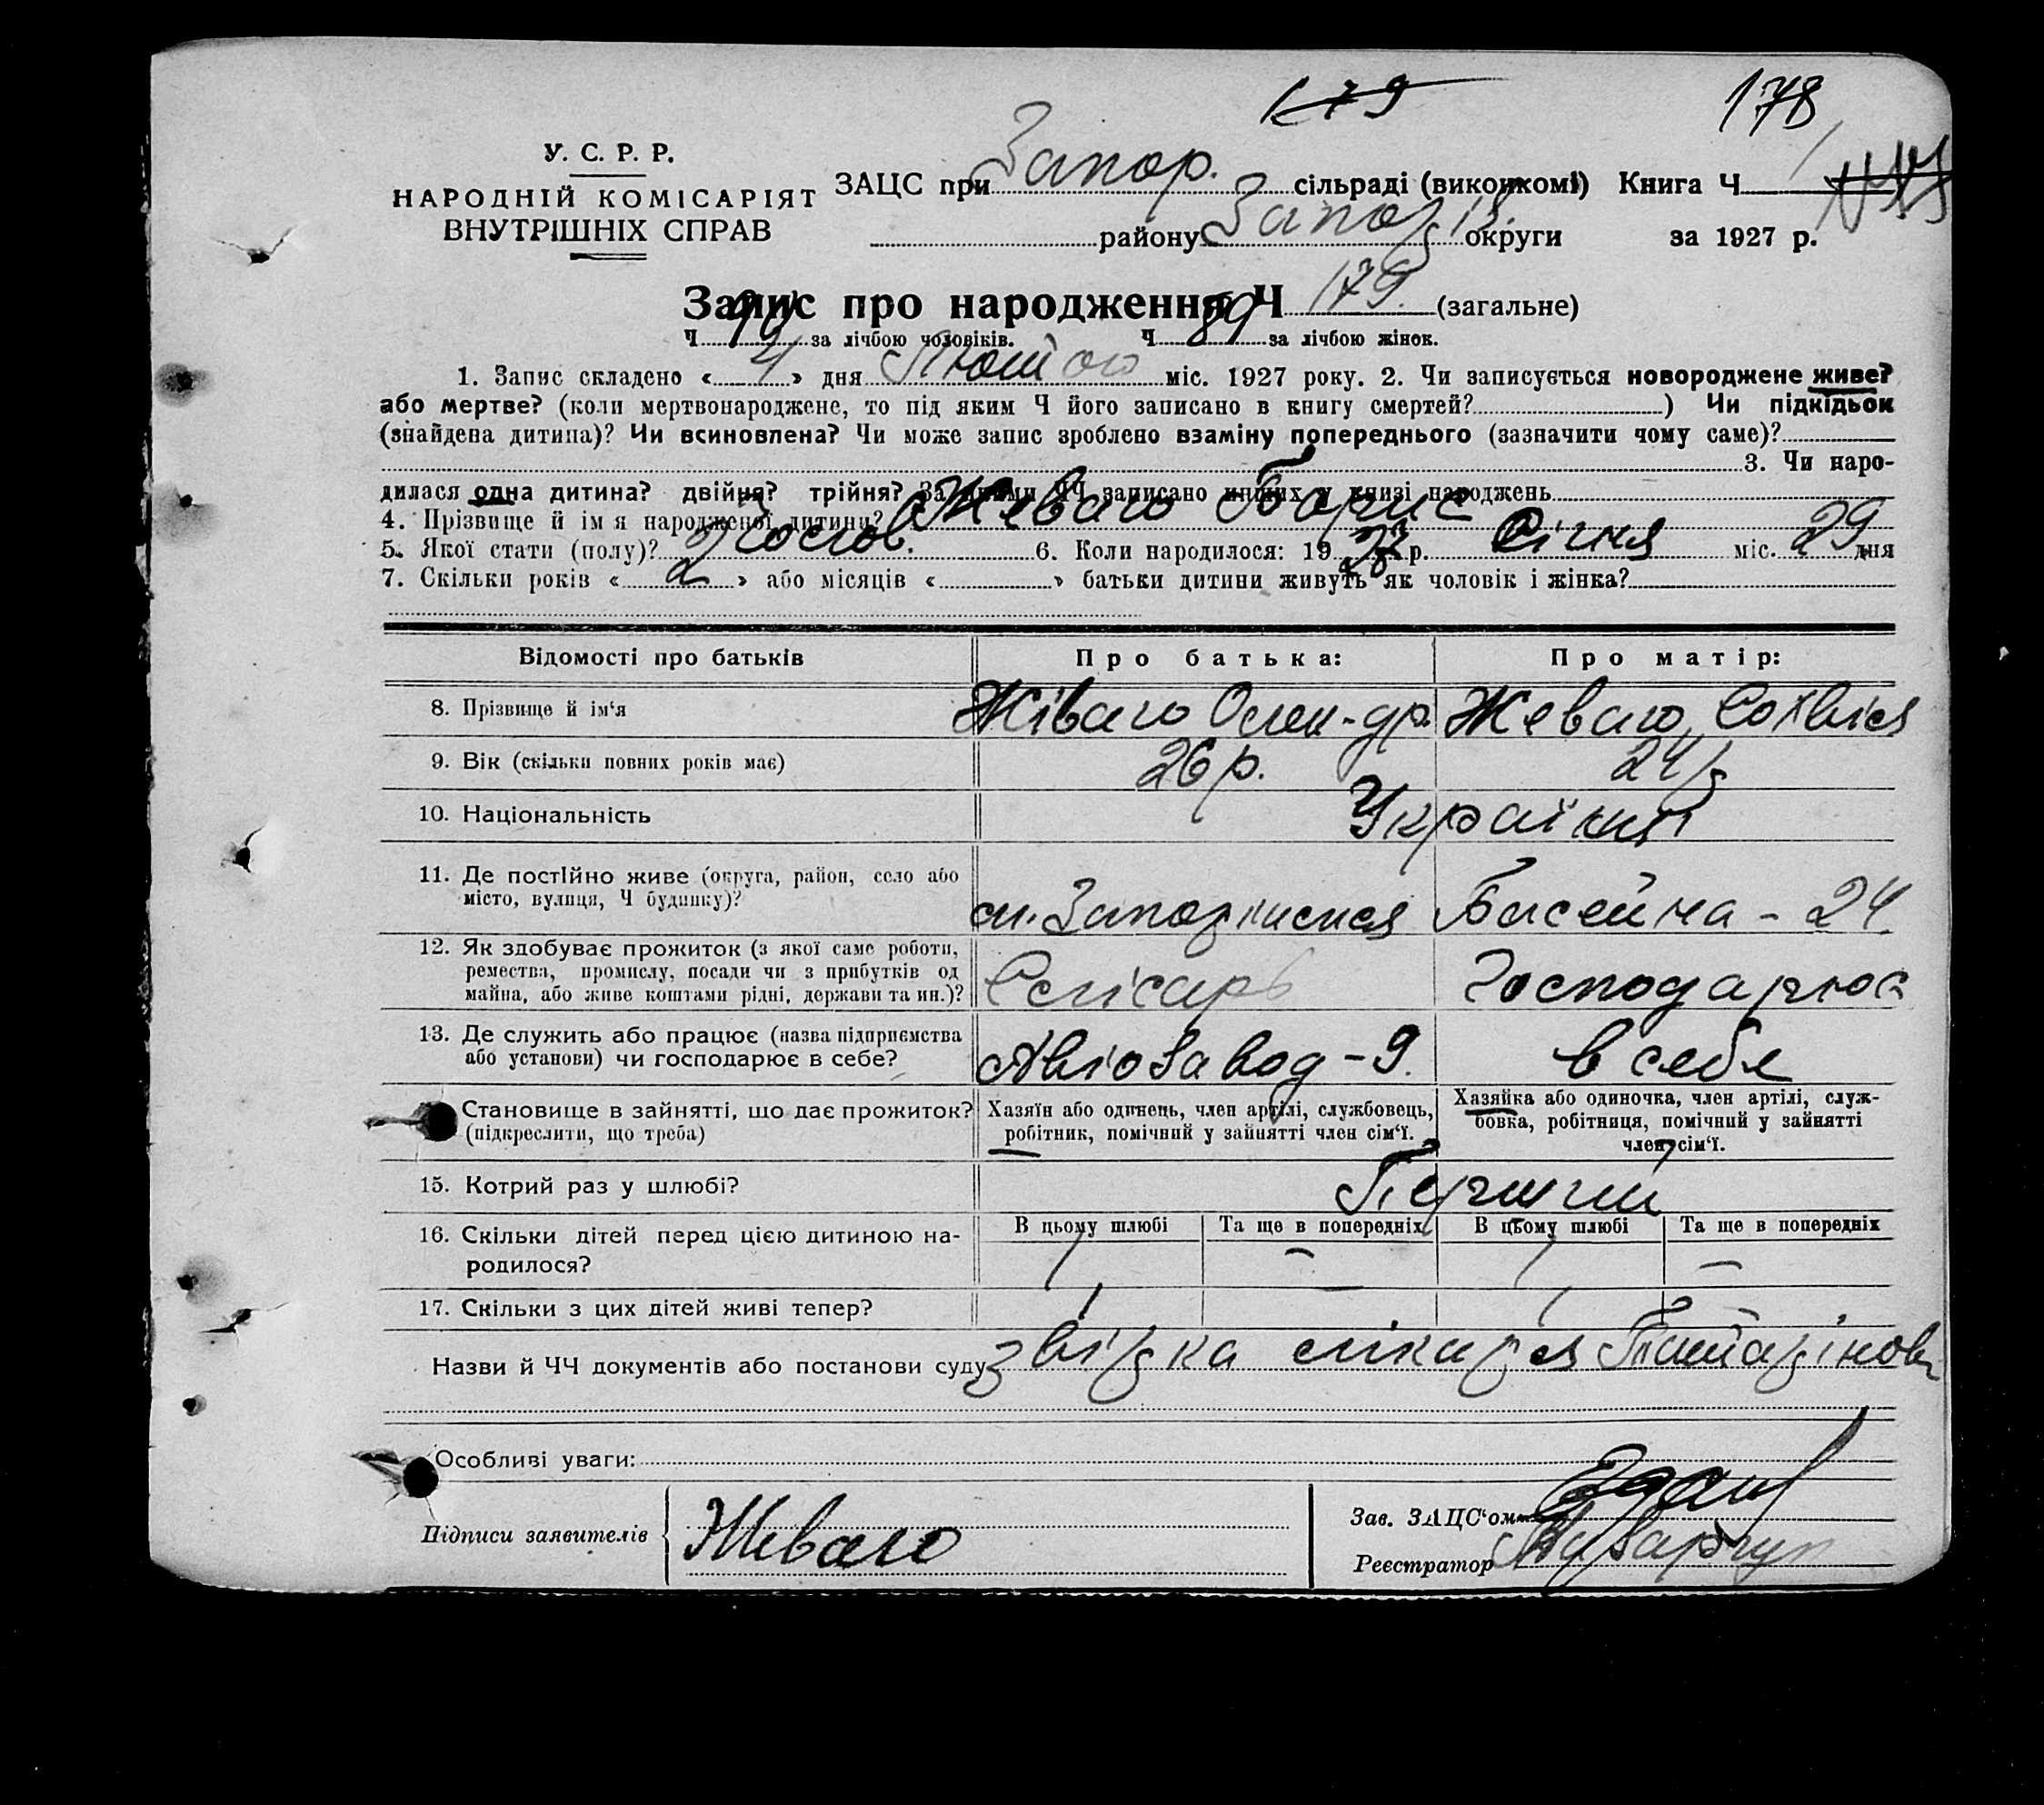 179 178
У. С. Р. Р.
НАРОДНІЙ КОМІСАРІЯТ
ВНУТРІШНІХ СПРАВ
ЗАЦС при Запор. сільраді (виконкомі) Книга Ч
району Запоріз. округи за 1927 р.
Запис про народження Ч 179. (загальне)
Ч 90 за лічбою чоловіків. Ч 89 за лічбою жінок.
1. Запис складено « 4 » дня Лютого міс. 1927 року. 2. Чи записується новороджене живе?
або мертве? (коли мертвонароджене, то під яким Ч його записано в книгу смертей? ) Чи підкідьок
(знайдена дитина)? Чи всиновлена? Чи може запис зроблено взаміну попереднього (зазначити чому саме)?
3. Чи наро-
дилася одна дитина? двійня? трійня? За якими ЧЧ записано инших у книзі народжень
4. Прізвище й ім я народженої дитини? Живаго Борис
5. Якої стати (полу)? Чослов. 6. Коли народилося: 19 27 р. Січня міс. 29 дня
7. Скільки років « 2 » або місяців « » батьки дитини живуть як чоловік і жінка?
Відомості про батьків Про батька: Про матір:
8. Прізвище й ім'я Живаго Олек-др. Жеваго Софвія
9. Вік (скільки повних років має) 26 р. 24 р
10. Національність Українці
11. Де постійно живе (округа, район, село або
місто, вулиця, Ч будинку)? м. Запоріжжя Басейна - 24.
12. Як здобуває прожиток (з якої саме роботи,
ремества, промислу, посади чи з прибутків од
майна, або живе коштами рідні, держави та ин.)? Слісарь Господарює
13. Де служить або працює (назва підприємства
або установи) чи господарює в себе? Авіозавод - 9. в себе
Становище в зайнятті, що дає прожиток?
(підкреслити, що треба)
Хазяїн або одинець, член артілі, службовець,
робітник, помічний у зайнятті член сім'ї.
Хазяйка або одиночка, член артілі, служ-
бовка, робітниця, помічний у зайнятті
член сім'ї.
15. Котрий раз у шлюбі? Перший
16. Скільки дітей перед цією дитиною на-
родилося?
В цьому шлюбі Та ще в попередніх В цьому шлюбі Та ще в попередніх
1 — 1 —
17. Скільки з цих дітей живі тепер? 1 — 1 —
Назви й ЧЧ документів або постанови суду звірка лікаря Татарінова
Особливі уваги:
Підписи заявителів Живаго
Зав. ЗАЦС'ом
Реєстратор